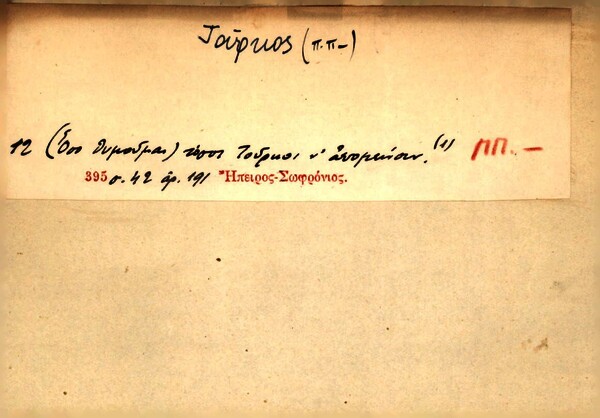 Τοῦρκος (π.π–)
12 (Ὅσο θυμοῦμαι) τόσοι Τοῦρκοι ν' ἀπομείνουν.(1) ΠΠ.–
395 σ. 42 ἀρ. 191 Ἤπειρος-Σωφρόνιος.